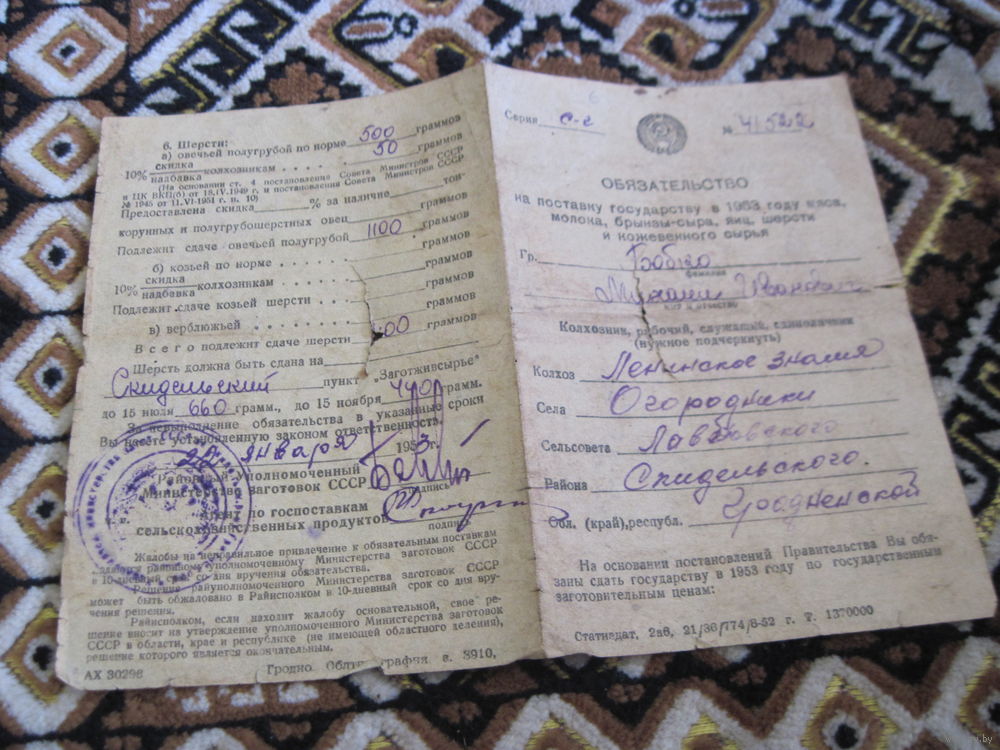 6. Шерсти:
а) овечьей полугрубой по норме 500 граммов
10% скидка надбавка колхозникам . . . . 50 граммов
(На основании ст. 4 постановления Совета Министров СССР
и ЦК ВКП(б) от 18.IV.1949 г. и постановления Совета Министров СССР
№ 1946 от 11.VI-1951 г. п. 10)
Предоставлена скидка % за наличие тон-
корунных и полугрубошерстных овец граммов
Подлежит сдаче овечьей полугрубой 1100 граммов
б) козьей по норме . . . . . граммов
10% скидка надбавка колхозникам . . . . граммов
Подлежит сдаче козьей шерсти . . . граммов
в) верблюжьей . . . . граммов
Всего подлежит сдаче шерсти 00 граммов
Шерсть должна быть сдана на
Скидельский пункт "Заготживсырье"
до 15 июля 660 грамм., до 15 ноября 440 грамм.
За невыполнение обязательства в указанные сроки
Вы несете установленную законом ответственность.
20 января 1953 г.
Районный Уполномоченный
Министерства заготовок СССР
подпись
Агент по госпоставкам
сельскохозяйственных продуктов
подпись
Жалобы на неправильное привлечение к обязательным поставкам
подаются районному уполномоченному Министерства заготовок СССР
в 10-дневный срок со дня вручения обязательства.
Решение райуполномоченного Министерства заготовок СССР
может быть обжаловано в Райисполком в 10-дневный срок со дня вру-
чения решения.
Райисполком, если находит жалобу основательной, свое ре-
шение вносит на утверждение уполномоченного Министерства заготовок
СССР в области, крае и республике (не имеющей областного деления),
решение которого является окончательным.
АХ 30296 Гродно. Облтипография з. 3910,
Серия С-г № 41522
ОБЯЗАТЕЛЬСТВО
на поставку государству в 1953 году мяса,
молока, брынзы-сыра, яиц, шерсти
и кожевенного сырья
Гр. Бобко
фамилия
Михаил Иванович
имя и отчество
Колхозник, рабочий, служащий, единоличник
(нужное подчеркнуть)
Колхоз Ленинское знамя
Села Огородники
Сельсовета
Района Скидельского.
Обл. (край), республ. Гродненской
На основании постановлений Правительства Вы обя-
заны сдать государству в 1953 году по государственным
заготовительным ценам:
Статиздат, 2ав, 21/36/774/8-52 г. Т. 1370000